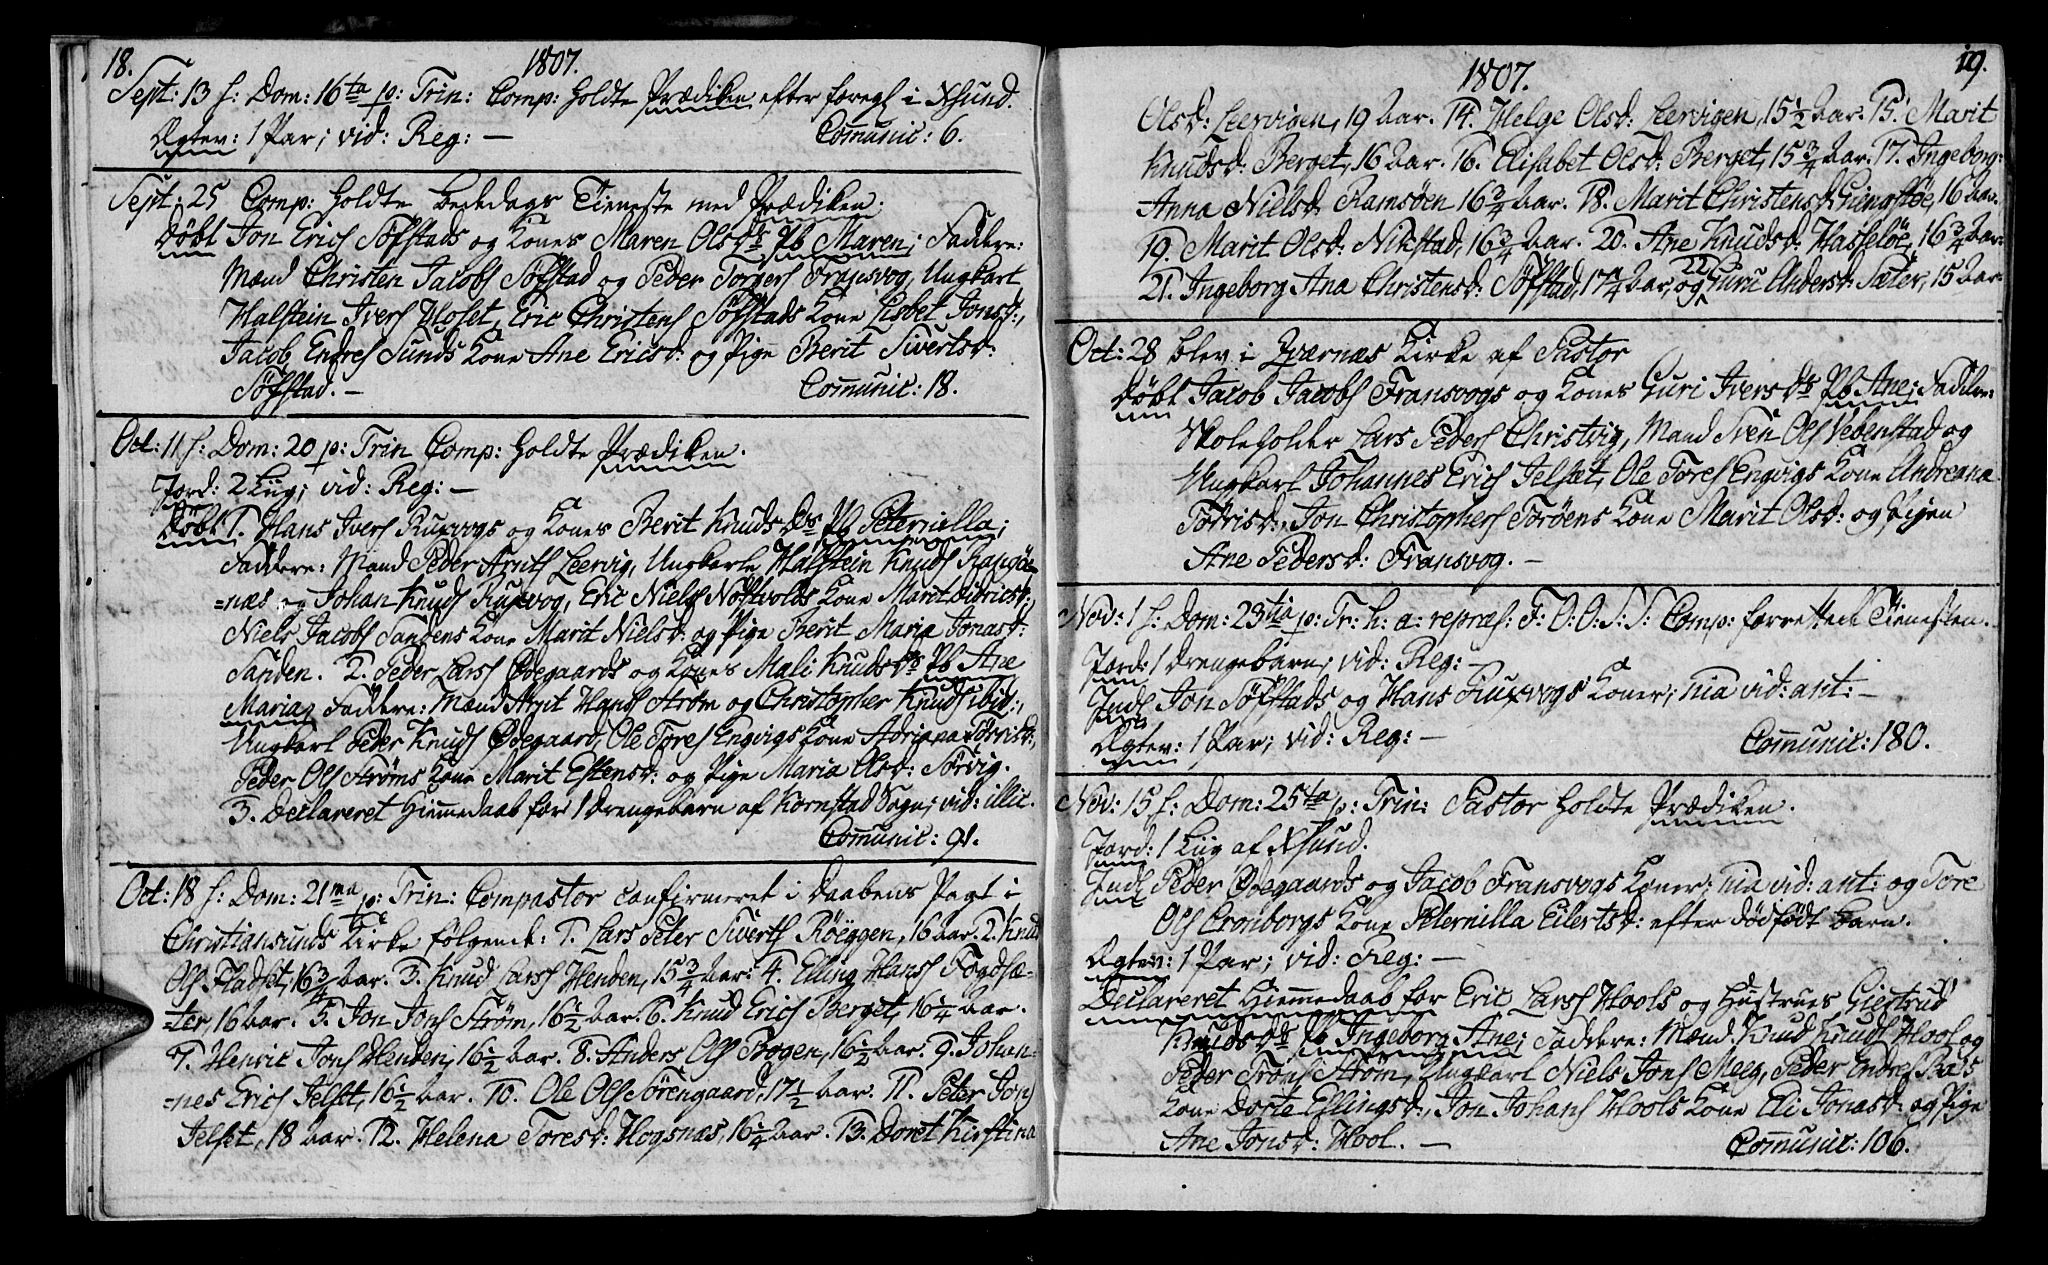 18.
1807.
Sept: 13 f: Dom: 16ta p: Trin: Comp: holdte Prædiken efter foregl i Xsund.
Ægtev: 1 Par; vid: Reg: — Comunic: 6.
Sept: 25 Comp: holdte Bededags Tieneste med Prædiken.
Døbt Jon Erics Söfstads og Kones Maren Olsdr Pb Maren; Faddere:
Mænd Christen Jacobs Söfstad og Peder Torgers Fransvog, Ungkarl
Halstein Ivers Hoset, Eric Christens Söfstads Kone Lisbet Jonsd:,
Jacob Endres Sunds Kone Ane Ericsd: og Pige Berit Sivertsd:
Söfstad. — Comunic: 18.
Oct: 11 f: Dom: 20 p: Trin Comp: holdte Prædiken.
Jord: 2 Liig; vid: Reg: —
Døbt 1. Hans Ivers Ruxvogs og Kones Berit Knudsdr Pb Peternilla;
Faddere: Mænd Peder Arnts Leervig, Ungkarle Halstein Knuds Rangöe-
=næs og Johan Knuds Ruxvog, Eric Niels Nöstvolds Kone Marit Didricsd:,
Niels Jacobs Sandens Kone Marit Nielsd: og Pige Berit Maria Jonasd:
Sanden. 2. Peder Lars Ödegaards og Kones Mali Knudsdr Pb Ane
Maria; Faddere: Mænd Arnt Hans Ström og Christopher Knuds ibid:,
Ungkarl Peder Knuds Ödegaard, Ole Tores Engvigs Kone Adriana Törrisd:,
Peder Ols Ströms Kone Marit Estensd: og Pige Maria Olsd: Törvig.
3. Declareret Hiemmedaab for 1 Drengebarn af Kornstad Sogn; vid: illic.
Comunic: 91.
Oct: 18 f: Dom: 21ma p: Trin: Compastor confirmeret i Daabens Pagt i
Christiansunds Kirke følgende: 1. Lars Peter Siverts Röeggen, 16 Aar. 2. Knud
Ols Fladset, 16 3/4 Aar. 3. Knud Lars Henden, 15 3/4 Aar. 4. Elling Hans Fogdsæ-
=ter, 16 Aar. 5. Jon Jons Ström, 16 1/2 Aar. 6. Knud Erics Berget, 16 1/4 Aar.
7. Henric Jons Henden, 16 1/2 Aar. 8. Anders Ols Bogen, 16 1/2 Aar. 9. Johan-
=nes Erics Jelset, 16 1/2 Aar. 10. Ole Ols Sörengaard, 17 1/2 Aar. 11. Peter Jons
Jelset, 18 Aar. 12. Helena Toresd: Hogsnæs, 16 1/4 Aar. 13. Doret Kirstina
19.
1807.
Olsd: Leervigen, 19 Aar. 14. Helge Olsd: Leervigen, 15 1/2 Aar. 15. Marit
Knudsd: Berget, 16 Aar. 16. Elisabet Olsd: Berget, 15 3/4 Aar. 17. Ingeborg
Anna Nielsd: Ramsöen 16 3/4 Aar. 18. Marit Christensd: 16 Aar.
19. Marit Olsd: Nikstad, 16 3/4 Aar. 20. Ane Knudsd: Hasselöe, 16 3/4 Aar.
21. Ingeborg Ana Christensd: Söfstad, 17 1/4 Aar, og 22 Guru Andersd: Sæter, 15 Aar.
Oct: 28 blev i Qværnæs Kirke af Pastor
Døbt Jacob Jacobs Fransvogs og Kones Guri Iversdr Pb Ane; Faddere:
Skoleholder Lars Peders Christvig, Mand Sven Ols Vebenstad og
Ungkarl Johannes Erics Jelset, Ole Tores Engvigs Kone Andreana
Törrisd:, Jon Christophers Toröens Kone Marit Olsd: og Pigen
Ane Pedersd: Fransvog. —
Nov: 1 f: Dom: 23tia p: Tr: h: a: repræs: F: O: O: S: S: Comp: forrettede Tienesten.
Jord: 1 Drengebarn; vid: Reg: —
Indl Jon Söfstads og Hans Ruxvogs Koner; qvia vid: ant: —
Ægtev: 1 Par; vid: Reg: — Comunic: 180.
Nov: 15 f: Dom: 25ta p: Trin: Pastor holdte Prædiken.
Jord: 1 Liig af Xsund.
Indl Peder Ödegaards og Jacob Fransvogs Koner; qvia vid: ant: og Tore
Ols Cronborgs Kone Peternilla Eilertsd: efter dødfødt Barn.
Ægtev: 1 Par; vid: Reg: —
Declareret Hiemmedaab for Eric Lars Hools og Hustrues Giertrud
Knudsdr Pb Ingeborg Ane; Faddere: Mænd Knud Knuds Hool og
Peder Trons Ström, Ungkarl Niels Jons Meeg, Peder Endres Bö's
Kone Dorte Ellingsd:, Jon Johans Hools Kone Eli Jonasd: og Pige
Ane Jonsd: Hool. — Comunic: 106.